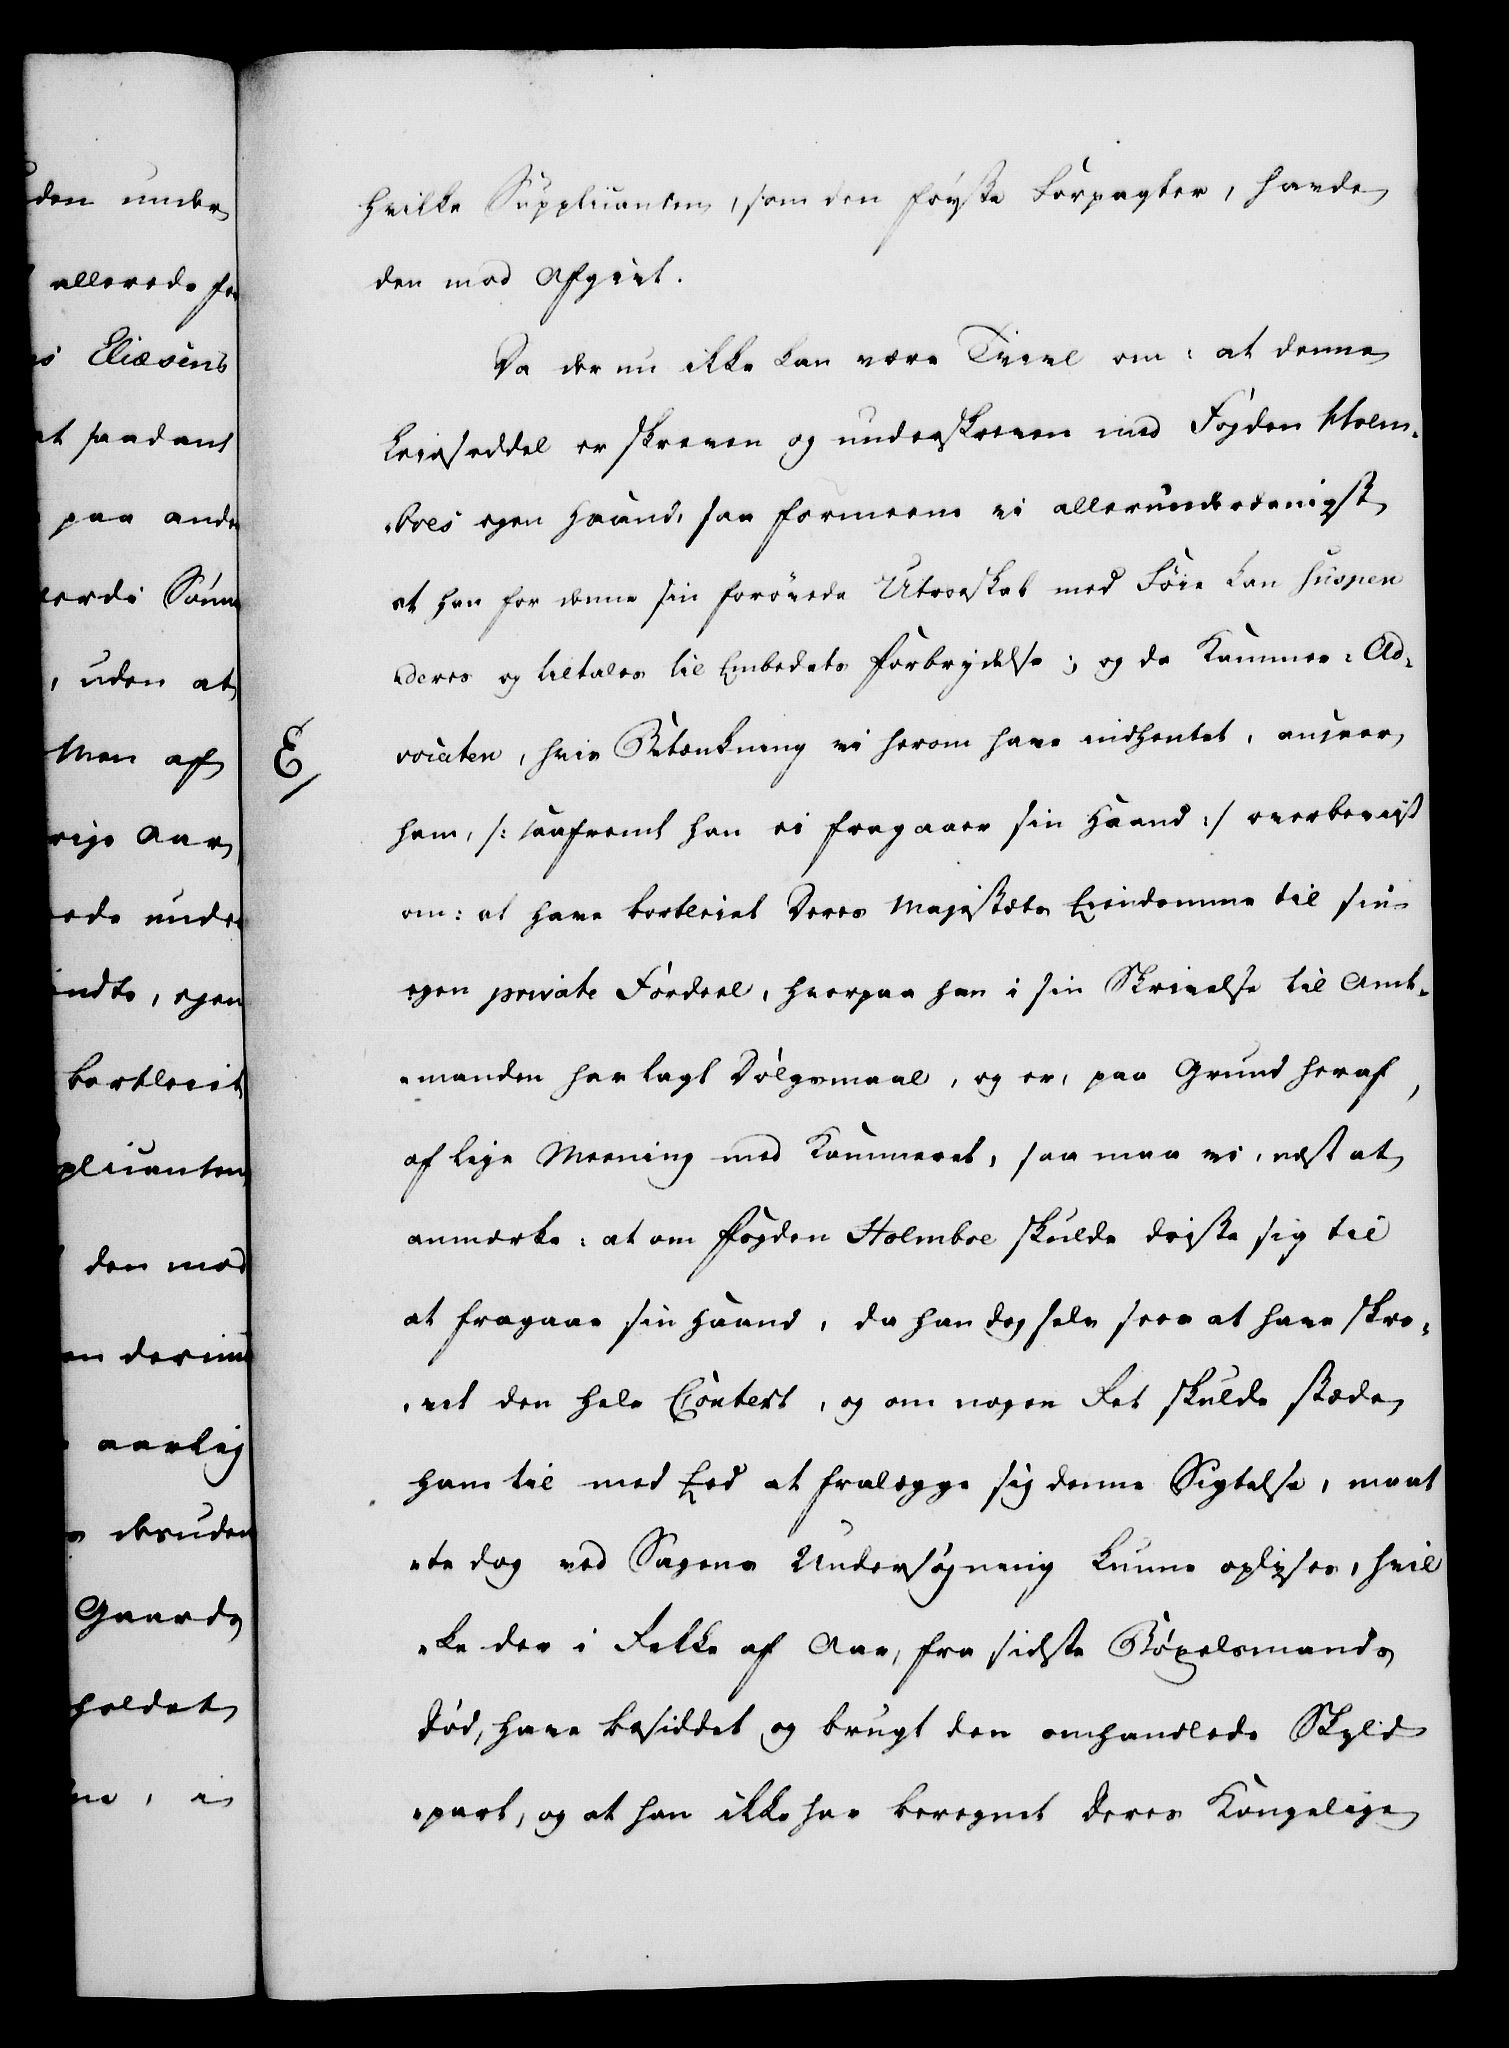 den under
allerede for
Eliæsens
at saadant
paa andre
verdi Sønne
, uden at
Men af
rige Aar,
ede under
indts, egen
bortleiet
plicanten
den mod
en derimod
aarlig
desuden
Gaards
holdet
ne, i
hvilke Supplicanten, som den første Forpagter, havde
den mod Afgivt.
Da der nu ikke kan være Tvivl om: at denne
Leiesæddel er skreven og underskreven med Fogden Holm-
-boes egen Haand, saa formeene vi allerunderdanigst
at han for denne sin forøvede Utroeskab med Føie kan suspen
-deres og tiltales til Embedets Forbrydelse; og da Kammer-Ad-
E/
vocaten, hvis Betænkning vi herom have indhentet, anseer
ham, /: saafremt han ei fragaaer sin Haand :/ overbeviist
om: at have bortleiet Deres Majestæts Eiendomme til sin
egen private Fordeel, hvorpaa han i sin Skrivelse til Amt-
-manden har lagt Dølgsmaal, og er, paa Grund heraf,
af lige Meening med Kammeret, saa maa vi, næst at
anmærke: at om Fogden Holmboe skulde driste sig til
at fragaae sin Haand, da han dog selv sees at have skre-
-vet den hele Context, og om nogen Ret skulde stæde
ham til med Eed at fralægge sig denne Sigtelse, maat
-te dog ved Sagens Undersøgning kunne oplyses, hvil
-ke der i Rekke af Aar, fra sidste Bøxelsmands
Død, have besiddet og brugt den omhandlede Skyld
-part, og at han ikke har beregnet Deres Kongelige